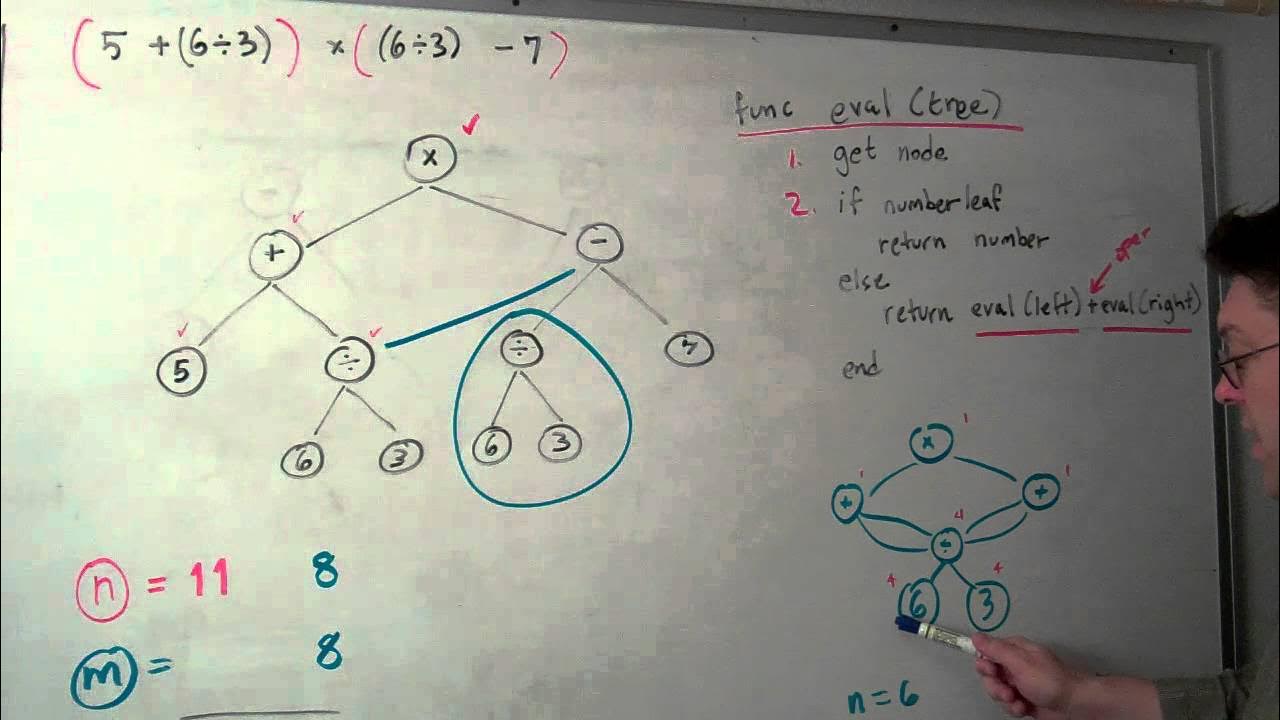 (5 +(6÷3)) ×((6÷3) -7)
×
+ -
5 ÷ ÷ 7
6 3 6 3
n = 11 8
m = 8
func eval(tree)
1. get node
2. if numberleaf
return number
else
oper
return eval(left)+eval(right)
end
1
×
1 1
+ +
4
÷
4 4
6 3
n=6